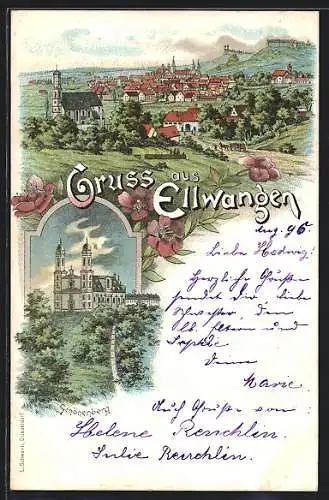 Gruss aus
Ellwangen
Aug. 96
Liebe Hedwig!
Herzliche Grüße
sendet Dir, liebe
Schwester, den
lb. Eltern und
Sophie
Deine
Marie.
Auch Grüße von:
Helene Renchlin.
Julie Renchlin.
Schönenberg